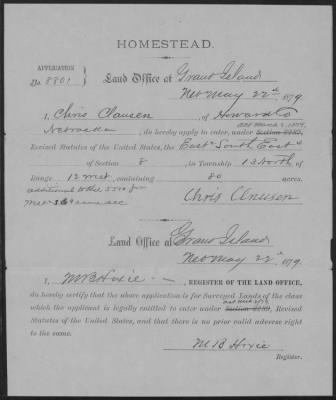 HOMESTEAD.
APPLICATION
No. 8801
Land Office at Grand Island
Neb May 22d 1879
I, Chris Clausen, of Howard Co
Act March 3. 1879.
Nebraska, do hereby apply to enter, under Section 2289,
Revised Statutes of the United States, the East South East
of Section 8, in Township 13 North of
Range 12 West, containing 80 acres.
additional to H
Chris
Land Office at Grand Island
Neb May 22d 1879.
I, M B Hoxie, REGISTER OF THE LAND OFFICE,
do hereby certify that the above application is for Surveyed Lands of the class
which the applicant is legally entitled to enter under Section 2289, Revised
Statutes of the United States, and that there is no prior valid adverse right
to the same.
M B Hoxie
Register.